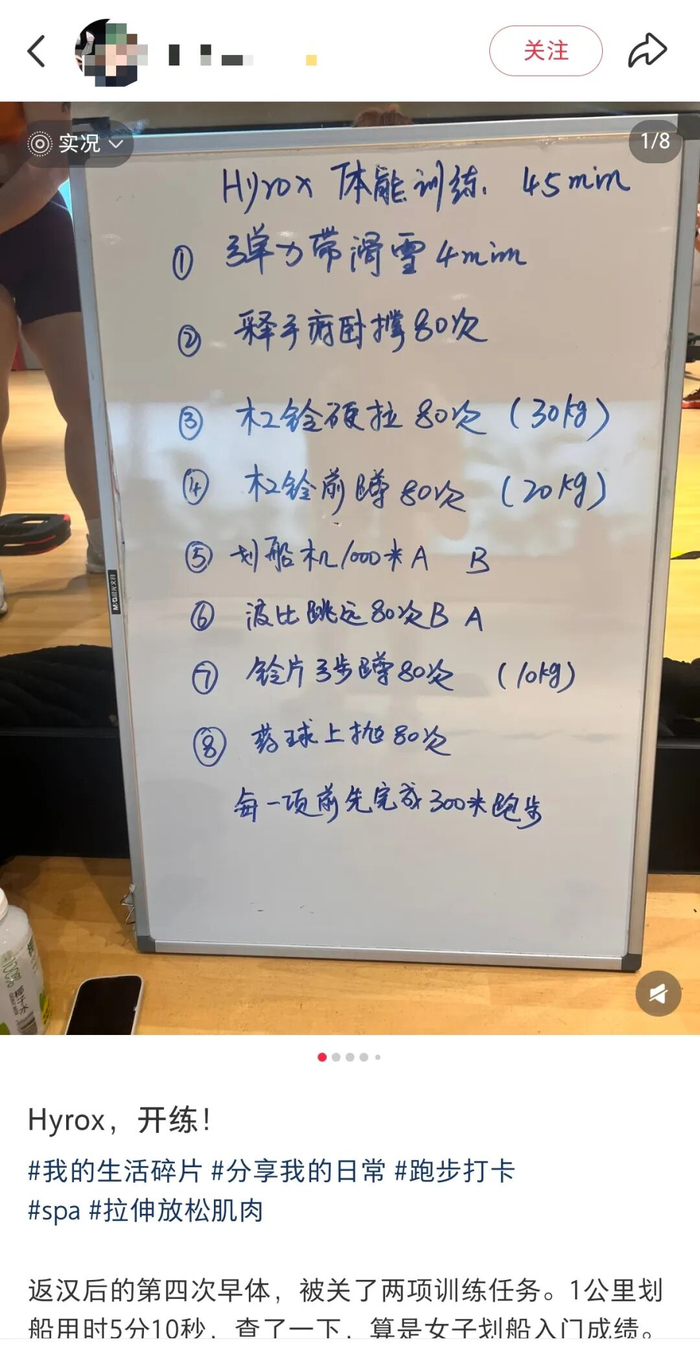 关注
实况
1/8
Hyrox 体能训练. 45min
① 弹力带滑雪4min
② 释手俯卧撑80次
③ 杠铃硬拉80次（30kg）
④ 杠铃前蹲80次（20kg）
⑤ 划船机1000米A B
⑥ 波比跳远80次B A
⑦ 铃片弓步蹲80次（10kg）
⑧ 药球上抛80次
每一项前先完成300米跑步
M&G
Hyrox，开练！
#我的生活碎片 #分享我的日常 #跑步打卡
#spa #拉伸放松肌肉
返汉后的第四次早体，被关了两项训练任务。1公里划
船用时5分10秒，查了一下，算是女子划船入门成绩。